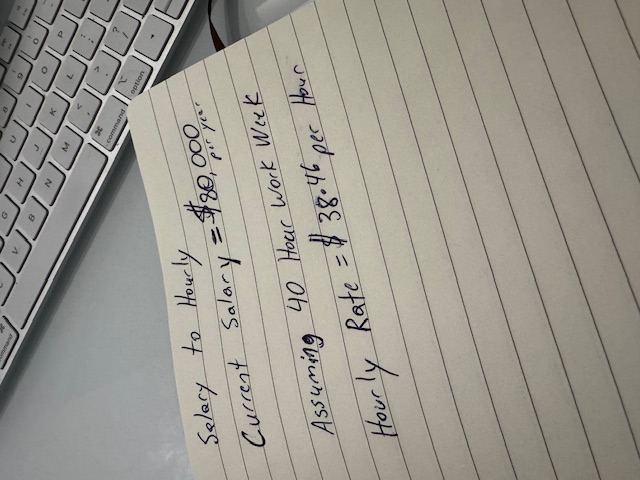 Salary to Hourly
Current Salary = $80,000
per year
Assuming 40 Hour Work Week
Hourly Rate = $38.46 per Hour
command
option